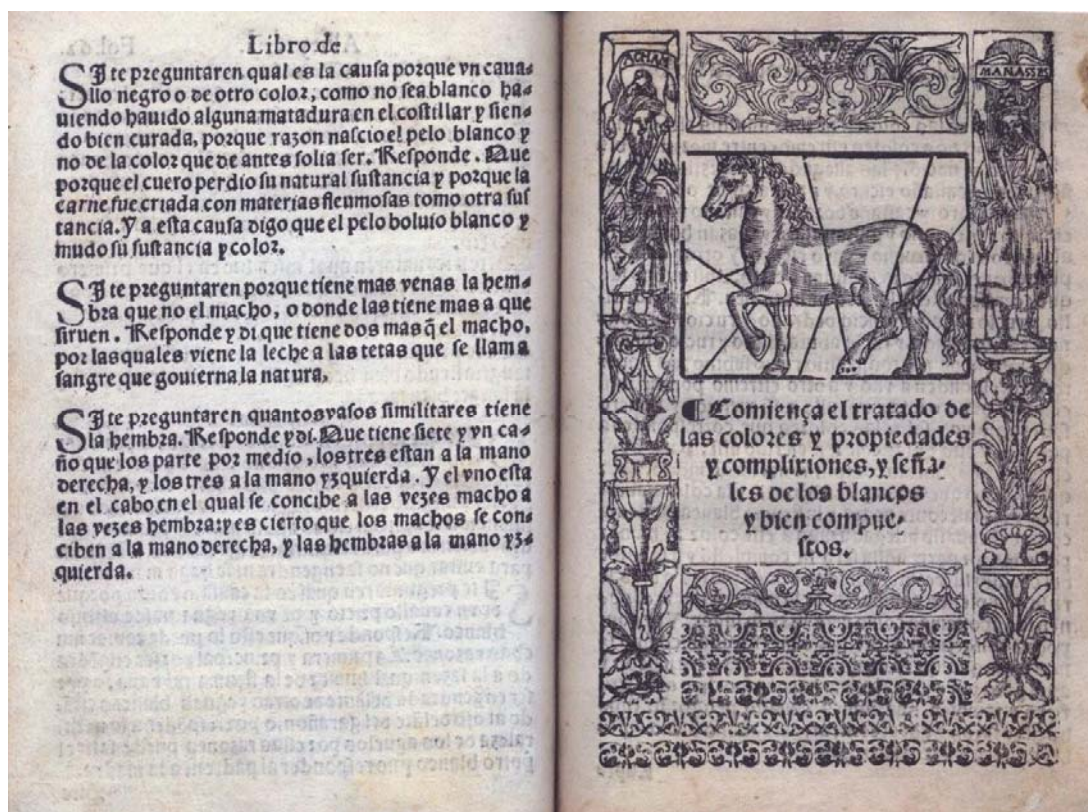 Libro de
SI te preguntaren qual es la causa porque vn caua-
llo negro o de otro color, como no sea blanco ha-
uiendo hauido alguna matadura en el costillar y sien-
do bien curada, porque razon nascio el pelo blanco y
no de la color que de antes solia ser. Responde. Que
porque el cuero perdio su natural sustancia y porque la
carne fue criada con materias fleumosas tomo otra sus
tancia. Y a esta causa digo que el pelo boluio blanco y
mudo su sustancia y color.
SI te preguntaren porque tiene mas venas la hem-
bra que no el macho, o donde las tiene mas a que
siruen. Responde y di que tiene dos mas q̃ el macho,
por las quales viene la leche a las tetas que se llama
sangre que gouierna la natura.
SI te preguntaren quantos vasos similitares tiene
la hembra. Responde y di. Que tiene siete y vn ca-
ño que los parte por medio, los tres estan a la mano
derecha, y los tres a la mano yzquierda. Y el vno esta
en el cabo en el qual se concibe a las vezes macho a
las vezes hembra: y es cierto que los machos se con-
ciben a la mano derecha, y las hembras a la mano yz-
quierda.
MANASSES
¶ Comiença el tratado de
las colores y propiedades
y complixiones, y seña-
les de los blancos
y bien compue-
stos.